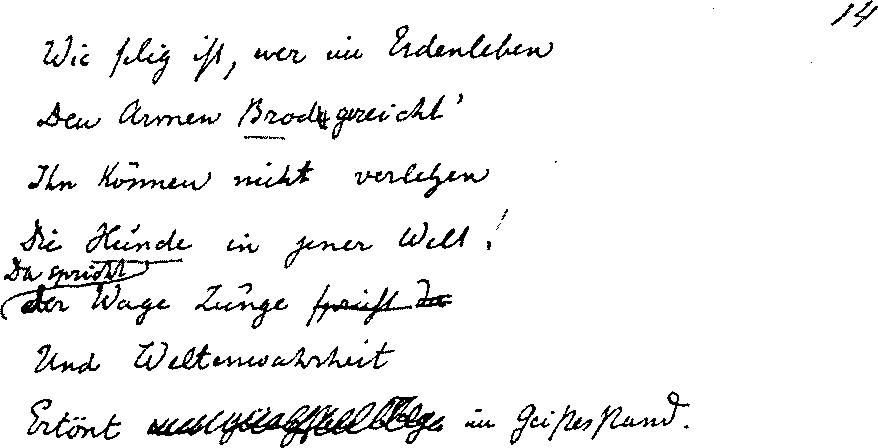 14
Wie selig ist, wer im Erdenleben
Den Armen Brod gereicht'
Ihn können nicht verletzen
Die Hunde in jener Welt!
Da spricht
der Wage Zunge spricht da
Und Weltenwahrheit
Ertönt im Geistesstand.